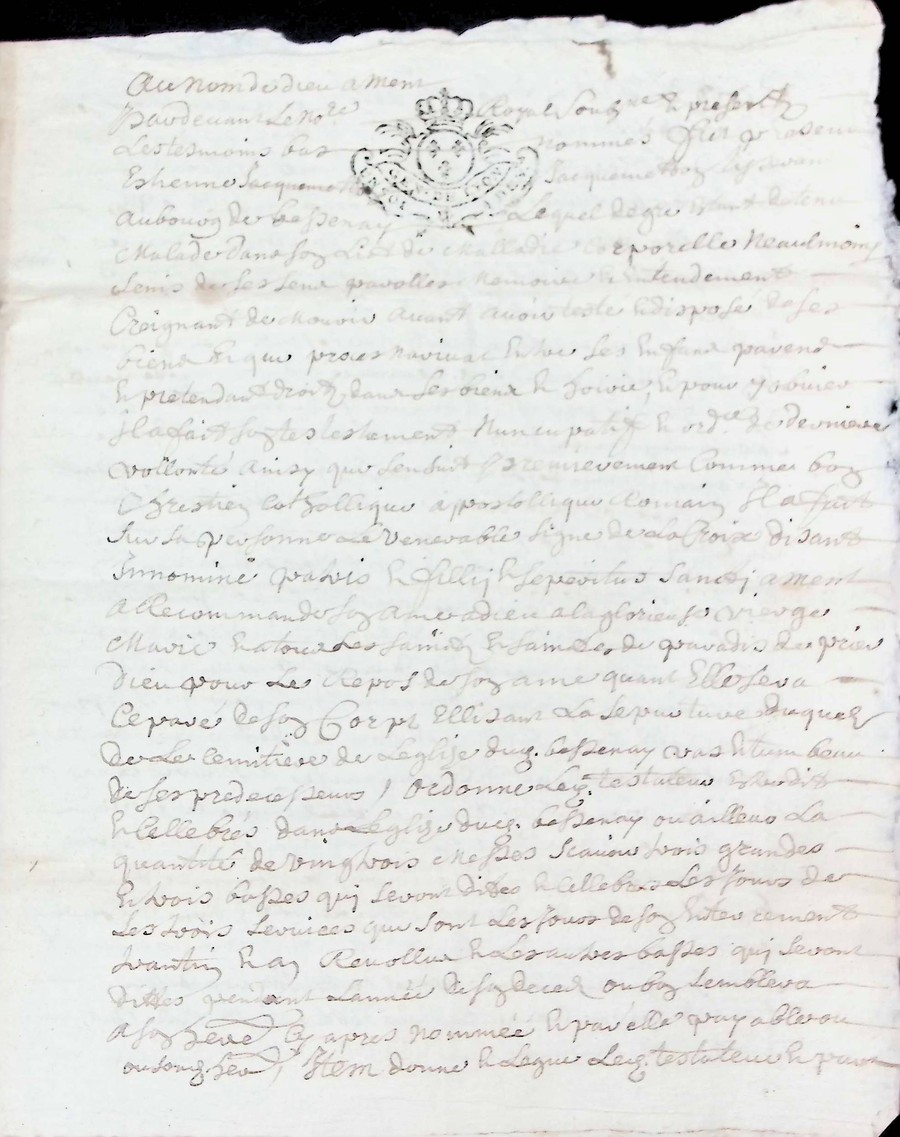 Au nom de dieu ament
Pardevant Le no.re Royal Soubz.né Et presents
Les tesmoins bas nommés fut present
Estienne Jacquemetton Jacquemetton
au bourg de bessenay Lequel de gré Estant detenu
Malade dans son Lict de Malladie Corporelle Neaulmoins
de ses sens parolles Memoire Et entendement
Creignant de Mourir avant avoir testé Et disposé de ses
biens Et que proces narivat Entre ses Enfans parens
Et pretendant droit dans ses biens Et hoirie, Et pour y obvier
Il a fait son testestament Nuncupatif Et ord.ce de derniere
vollonté ainsy que sensuit Premierement Comme bon
Chrestien Cathollique apostollique Romain Il a fait
sur sa personne Le Venerable Signe de La Croix disant
Innominé patris Et fillij Et speritus Sanctj ament
a Recommandé son ame a dieu a la glorieuse vierge
Marie Et a tous Les Saints Et Saintes de paradis de prier
Dieu pour Le Repos de son ame quant Elle sera
Ceparé de son Corps Ellisant La Sepurture duquel
de Le Cemitiere de Leglise dud. bessenay vas Et tumbeau
de ses predecesseurs / ordonne Led. testateur Estre dit
Et Cellebrés dans Leglise dud. bessenay ou ailleurs La
quantité de vingtrois Messes Scavoir trois grandes
Et trois basses quj seront dites Et Cellebres Les Jours de
Les trois services que sont Les Jours de son Enterrement
trantin Et an Revollu Et Les autres basses quj seront
dittes pendant Lannée de son deced ou bon Semblera
a son herd. Cy apres nommée Et par elle payable ou
ou sond. herd, Item donne Et Legue Led. testateur Et par